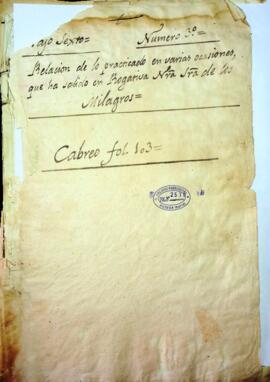 ajo Sexto= Numero 3º=
Relacion de lo practicado en varias ocasiones,
que ha salido en Rogativa Nrã Srã de los
Milagros=
Cabreo fol. 103=